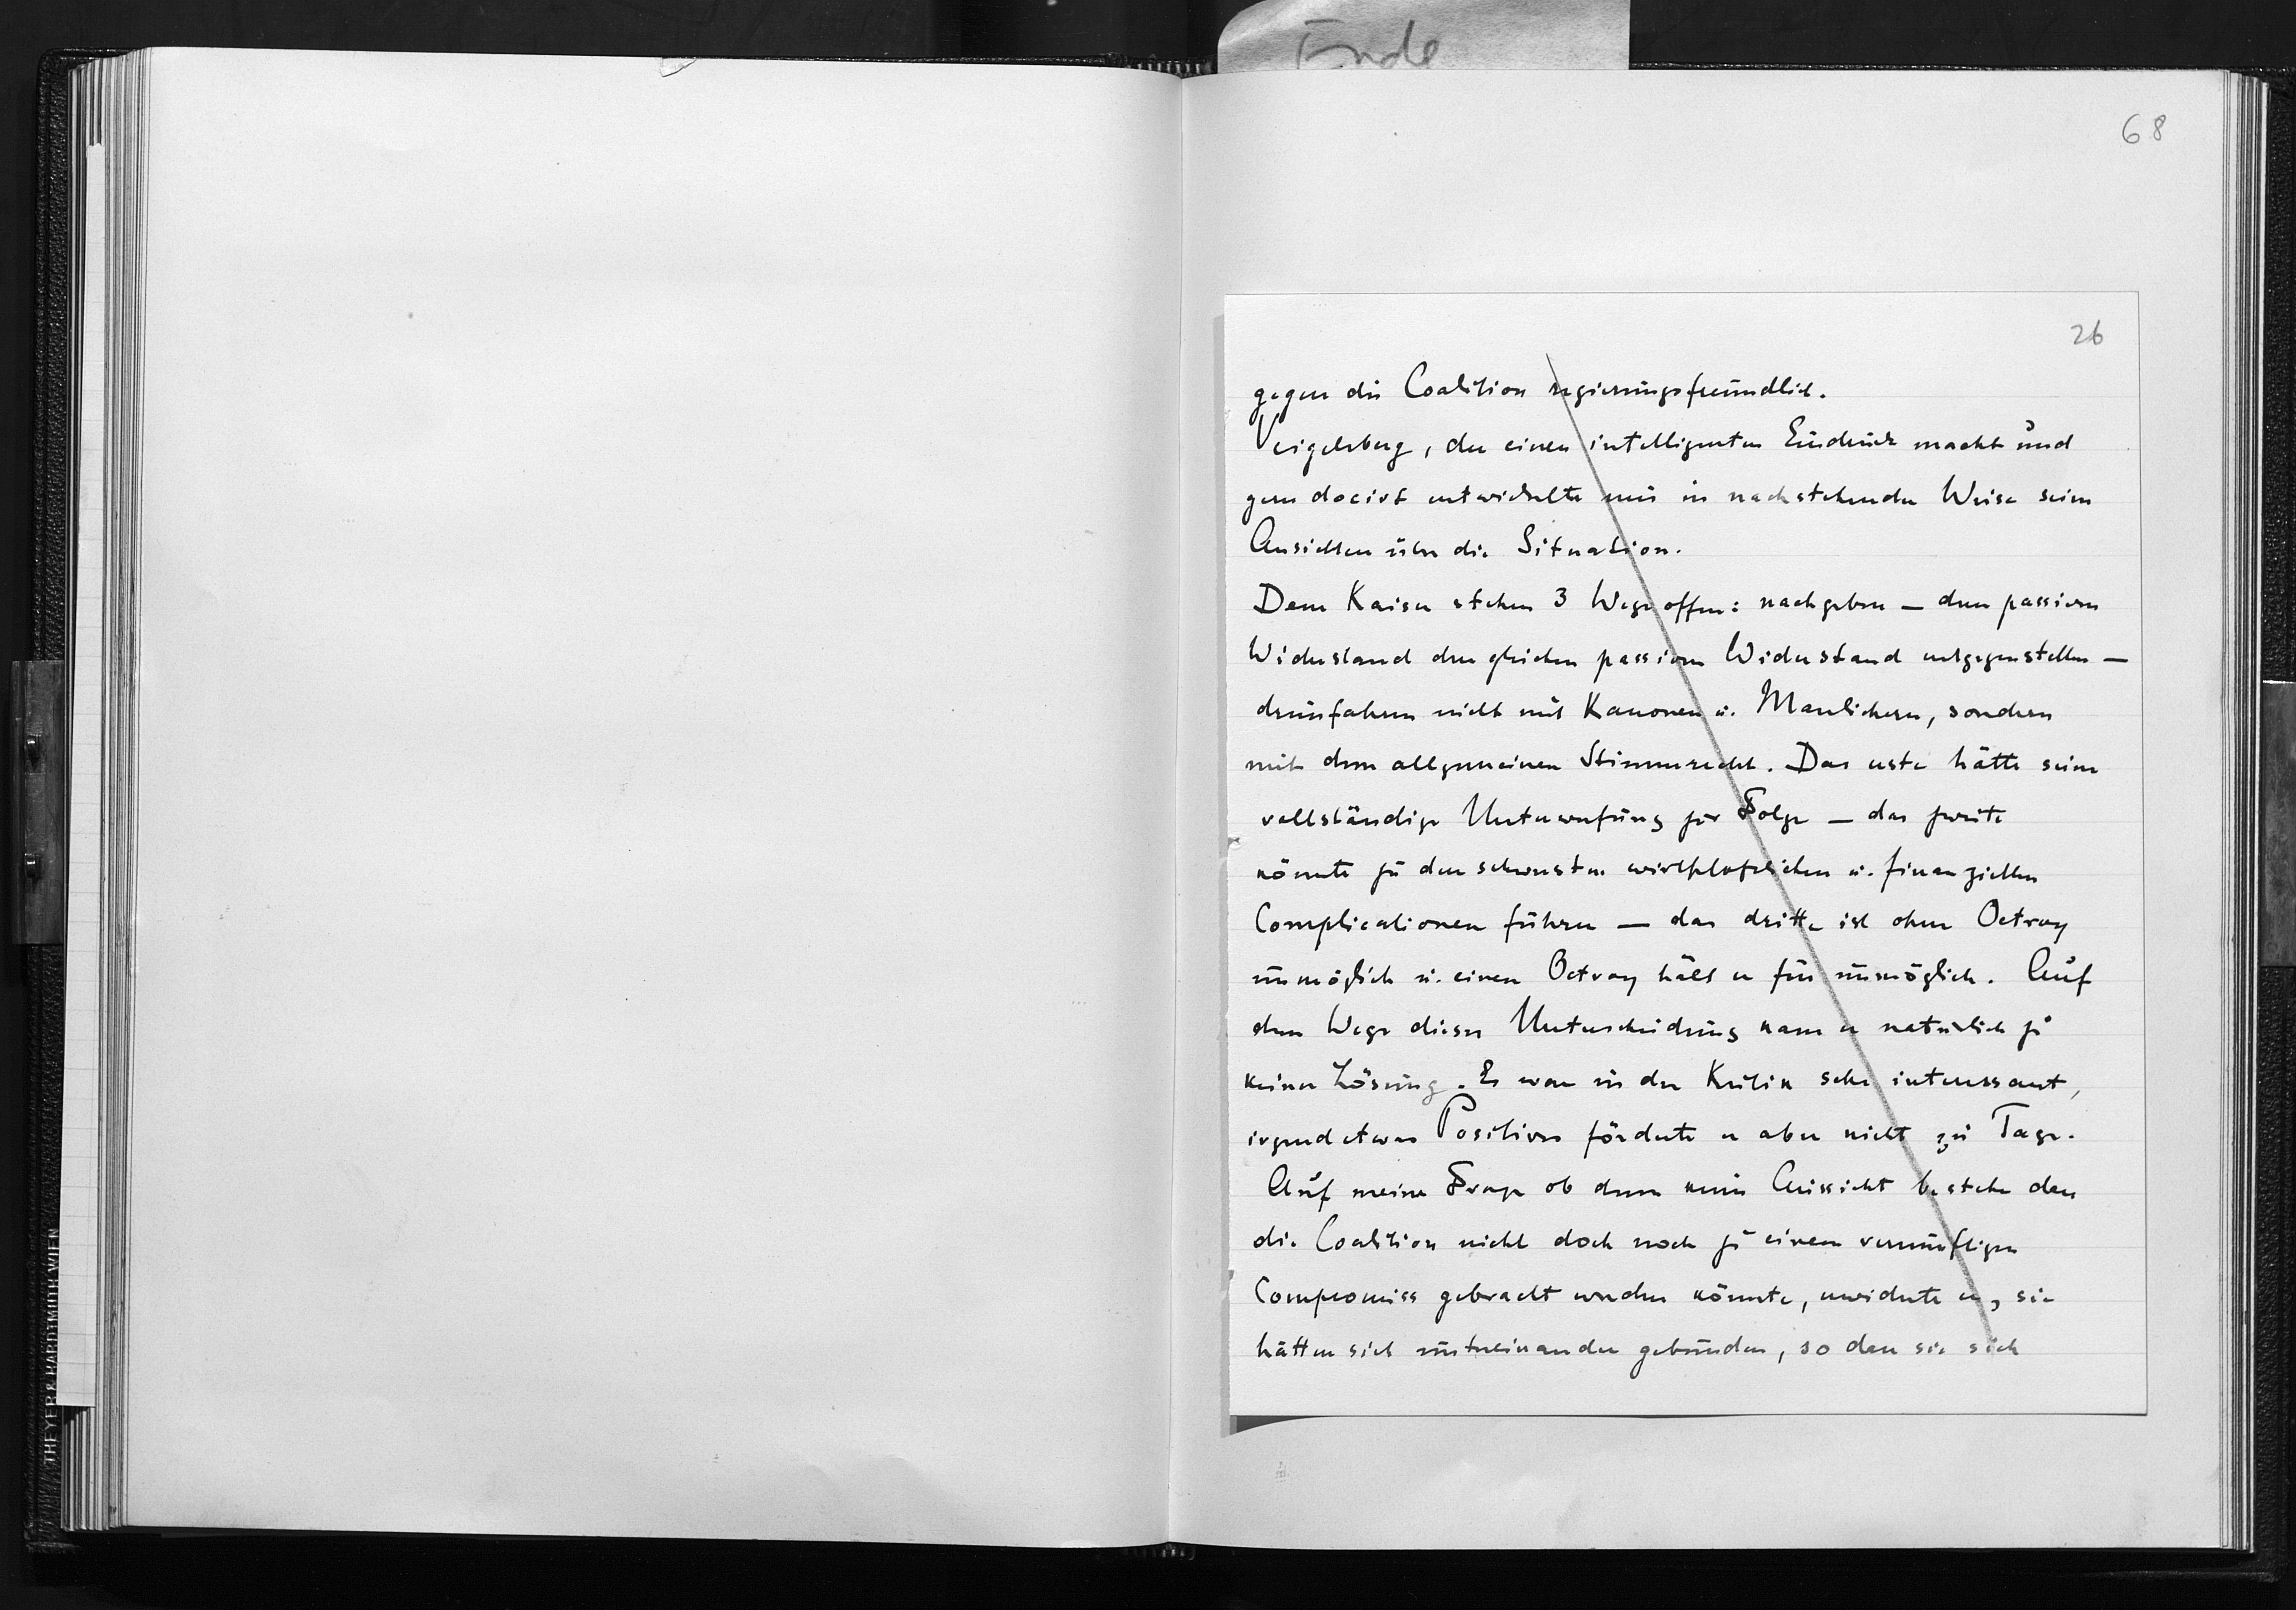 Ende
68
26
gegen die Coalition regierungsfreundlich.
Veigelsberg, der einen intelligenten Eindruck macht und
gern docirt entwickelte mir in nachstehender Weise seine
Ansichten über die Situation.
Dem Kaiser stehen 3 Wege offen: nachgeben — dem passiven
Widerstand den gleichen passiven Widerstand entgegenstellen —
dreinfahren nicht mit Kanonen u. Manlichern, sondern
mit dem allgemeinen Stimmrecht. Das erste hätte seine
vollständige Unterwerfung zur Folge — das zweite
könnte zu den schwersten wirthschaftlichen u. finanziellen
Complicationen führen — das dritte ist ohne Octroy
unmöglich u. einen Octroy hält er für unmöglich. Auf
dem Wege dieser Unterscheidung kam er natürlich zu
keiner Lösung. Er war in der Kritik sehr interessant,
irgend etwas Positives förderte er aber nicht zu Tage.
Auf meine Frage ob denn keine Aussicht bestehe dass
die Coalition nicht doch noch zu einem vernünftigen
Compromiss gebracht werden könnte, erwiderte er, sie
hätten sich untereinander gebunden, so dass sie sich
THEYER & HARDTMUTH WIEN